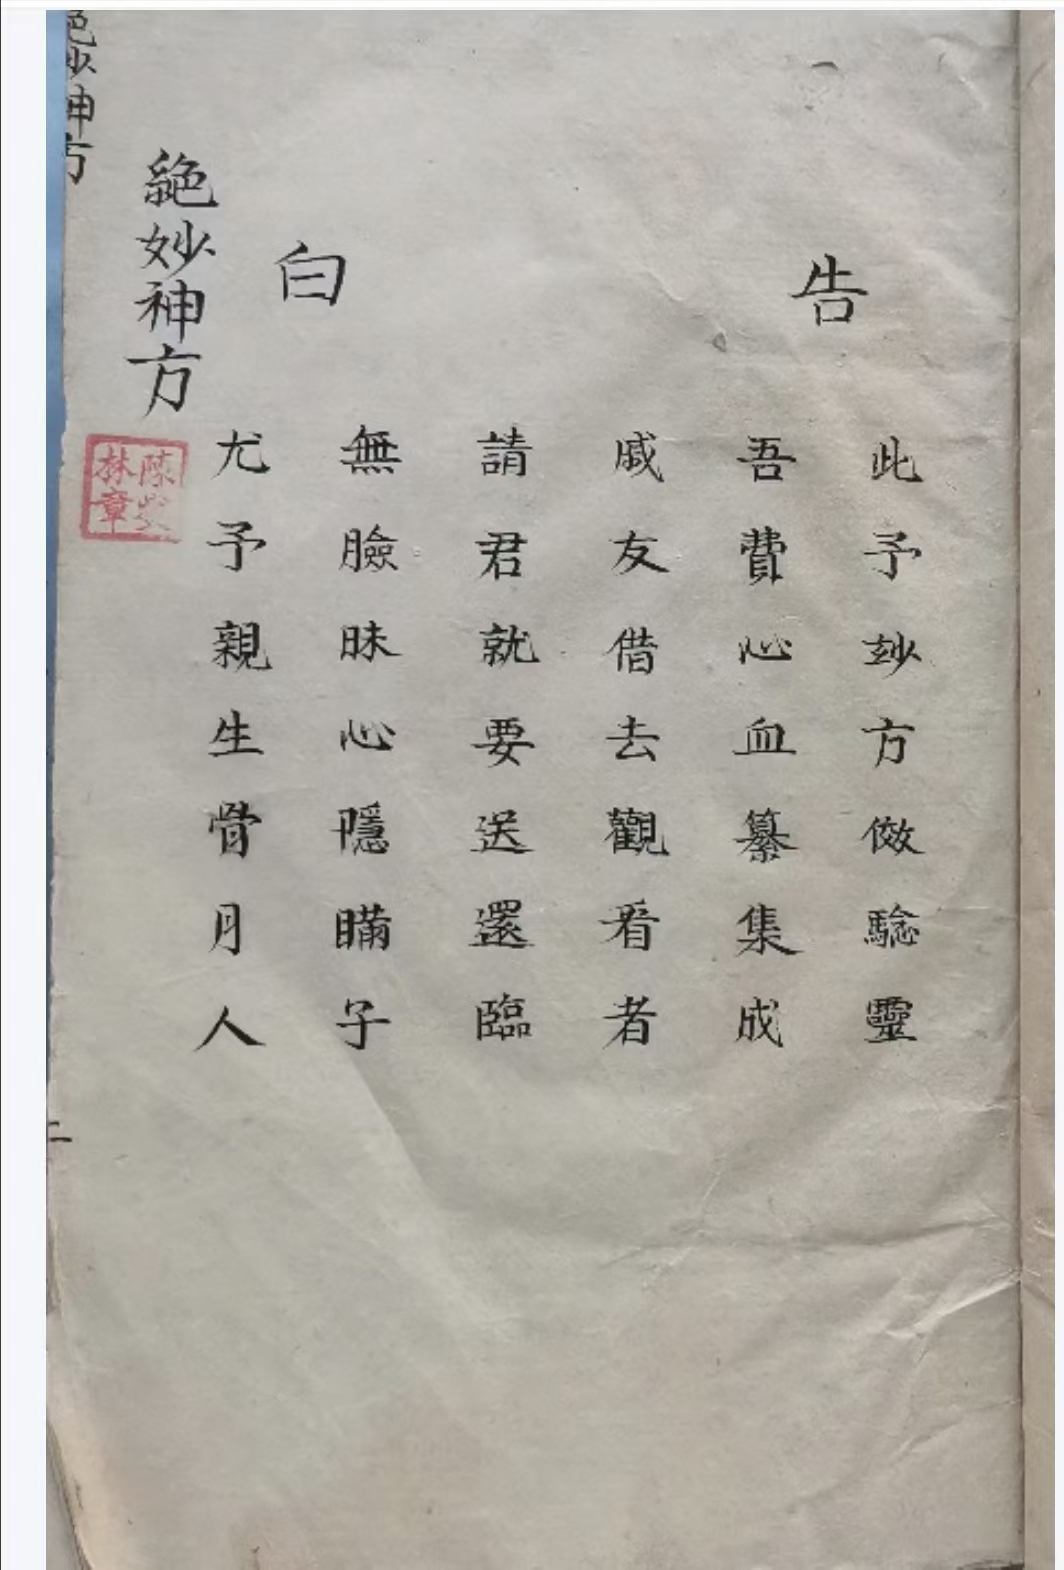 告白
此予玅方傚騐靈
吾費心血纂集成
戚友借去觀看者
請君就要送還臨
無臉昧心隱瞞子
尤予親生骨月人
絕妙神方
陳
林章
絕妙神方
二